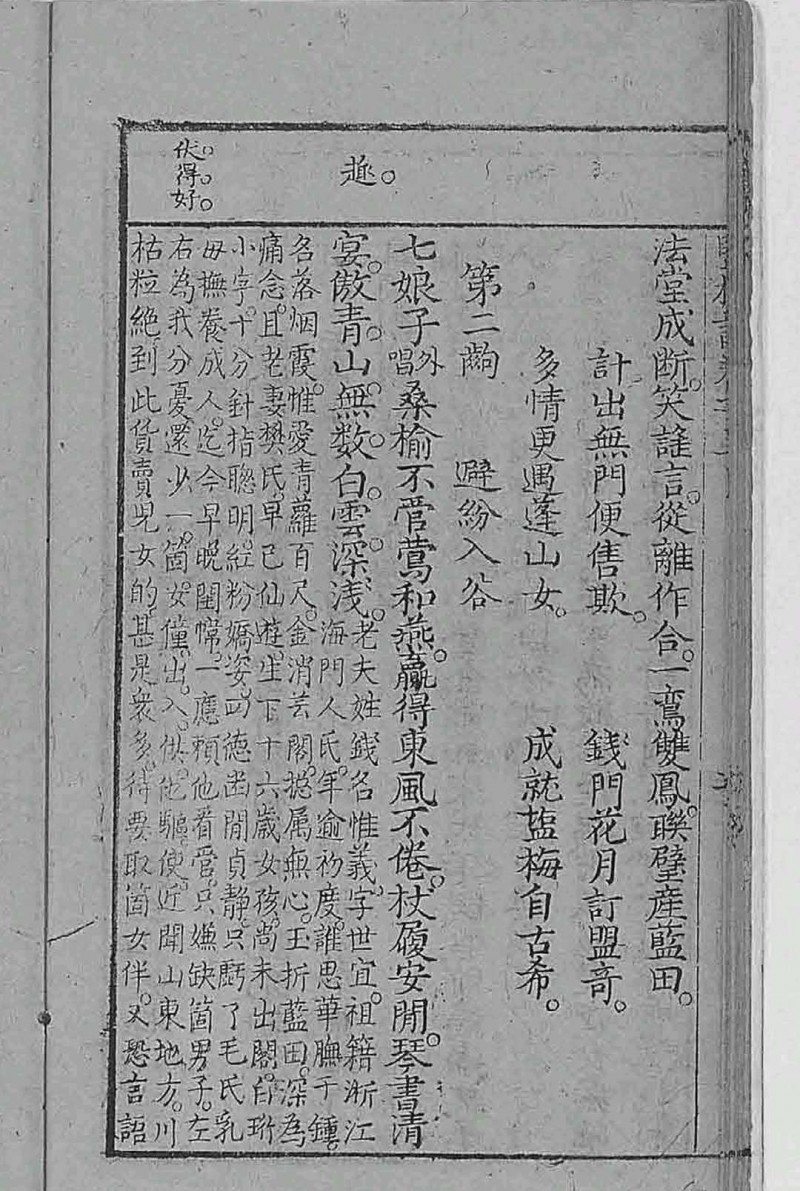 趂。
伏得好。
法堂成断。笑謡言。從離作合。一鸞雙鳳。聯璧産藍田。
計出無門便售欺。　錢門花月訂盟奇。
多情更遇蓬山女。　成就塩梅自古希。
第二齣　避紛入谷
七娘子外唱桑榆不管鶯和燕。贏得東風不倦。杖履安閒。琴書清
宴。傲青山。無数白雲深浅。老夫姓錢名惟義。字世宜。祖籍浙江
海門人氏。年逾初度。誰思華膴千鍾。
名落烟霞。惟愛青蘿百尺。金消芸閣。摠属無心。玉折藍田。深為
痛念。且老妻樊氏。早已仙遊。生下十六歲女孩。尚未出閣。印珩
小字。十分針指聰明。紅粉嬌姿。四德幽閒貞静。只虧了毛氏乳
毋撫養成人。迄今早晚閨幃。一應頼他看管。只嫌缺箇男子。左
右為我分憂。還少一箇女僮。出入供他驅使。近聞山東地方。川
枯粒絶。到此貨賣兒女的。甚是衆多。待要取箇女伴。又恐言語